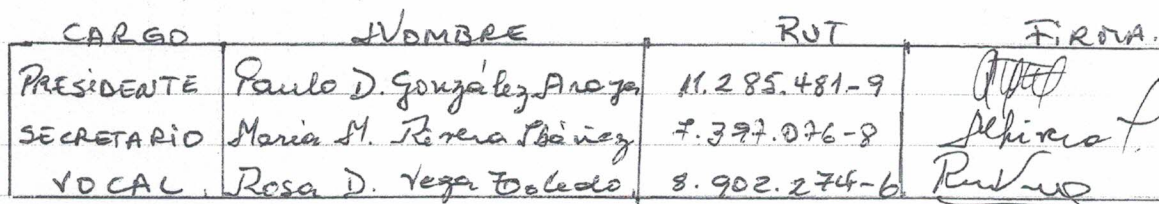 CARGO NOMBRE RUT FIRMA.
PRESIDENTE Paulo D. González Araya 11.285.481-9
SECRETARIO María M. Rivera Ibáñez 7.397.076-8
VOCAL Rosa D. Vega Toledo 8.902.274-6